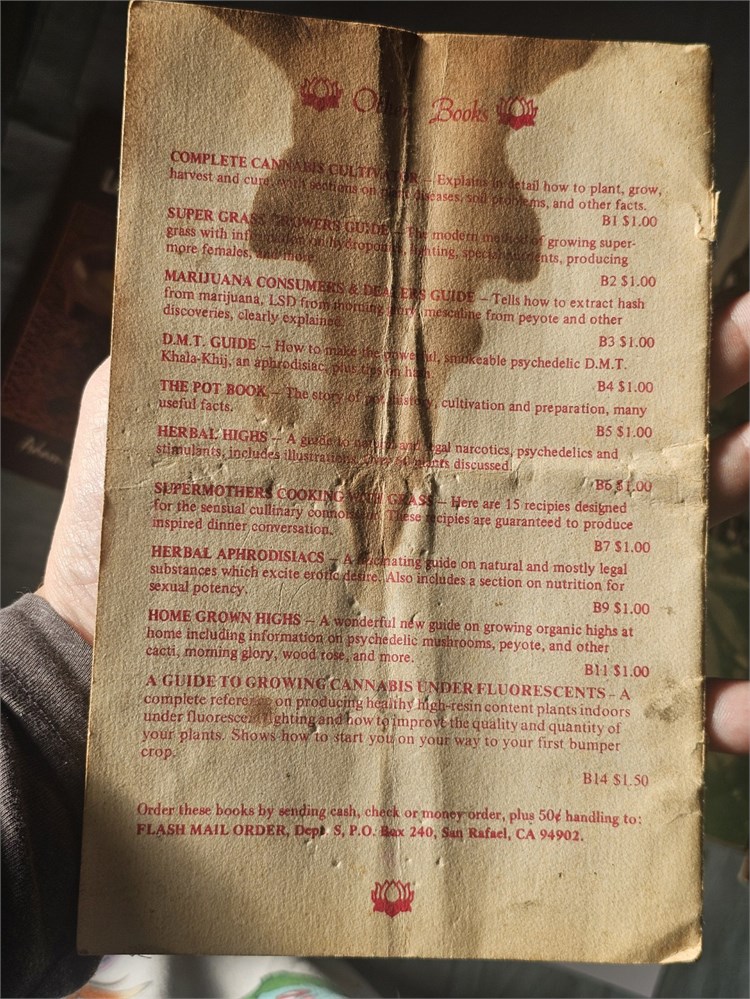 Other Books
COMPLETE CANNABIS CULTIVATOR – Explains in detail how to plant, grow,
harvest and cure, with sections on diseases, soil problems, and other facts.
B1 $1.00
SUPER GRASS GROWERS GUIDE – The modern method of growing super-
grass with information on hydroponics, lighting, special nutrients, producing
more females, and more.
B2 $1.00
MARIJUANA CONSUMERS & DEALERS GUIDE – Tells how to extract hash
from marijuana, LSD from morning glory, mescaline from peyote and other
discoveries, clearly explained.
B3 $1.00
D.M.T. GUIDE – How to make the powerful, smokeable psychedelic D.M.T.
Khala-Khij, an aphrodisiac, plus tips on hash.
B4 $1.00
THE POT BOOK – The story of pot, history, cultivation and preparation, many
useful facts.
B5 $1.00
HERBAL HIGHS – A guide to natural and legal narcotics, psychedelics and
stimulants, includes illustrations, over 60 plants discussed.
B6 $1.00
SUPERMOTHERS COOKING WITH GRASS – Here are 15 recipies designed
for the sensual cullinary connoisseur. These recipies are guaranteed to produce
inspired dinner conversation.
B7 $1.00
HERBAL APHRODISIACS – A fascinating guide on natural and mostly legal
substances which excite erotic desire. Also includes a section on nutrition for
sexual potency.
B9 $1.00
HOME GROWN HIGHS – A wonderful new guide on growing organic highs at
home including information on psychedelic mushrooms, peyote, and other
cacti, morning glory, wood rose, and more.
B11 $1.00
A GUIDE TO GROWING CANNABIS UNDER FLUORESCENTS – A
complete reference on producing healthy high-resin content plants indoors
under fluorescent lighting and how to improve the quality and quantity of
your plants. Shows how to start you on your way to your first bumper
crop.
B14 $1.50
Order these books by sending cash, check or money order, plus 50¢ handling to:
FLASH MAIL ORDER, Dept. S, P.O. Box 240, San Rafael, CA 94902.